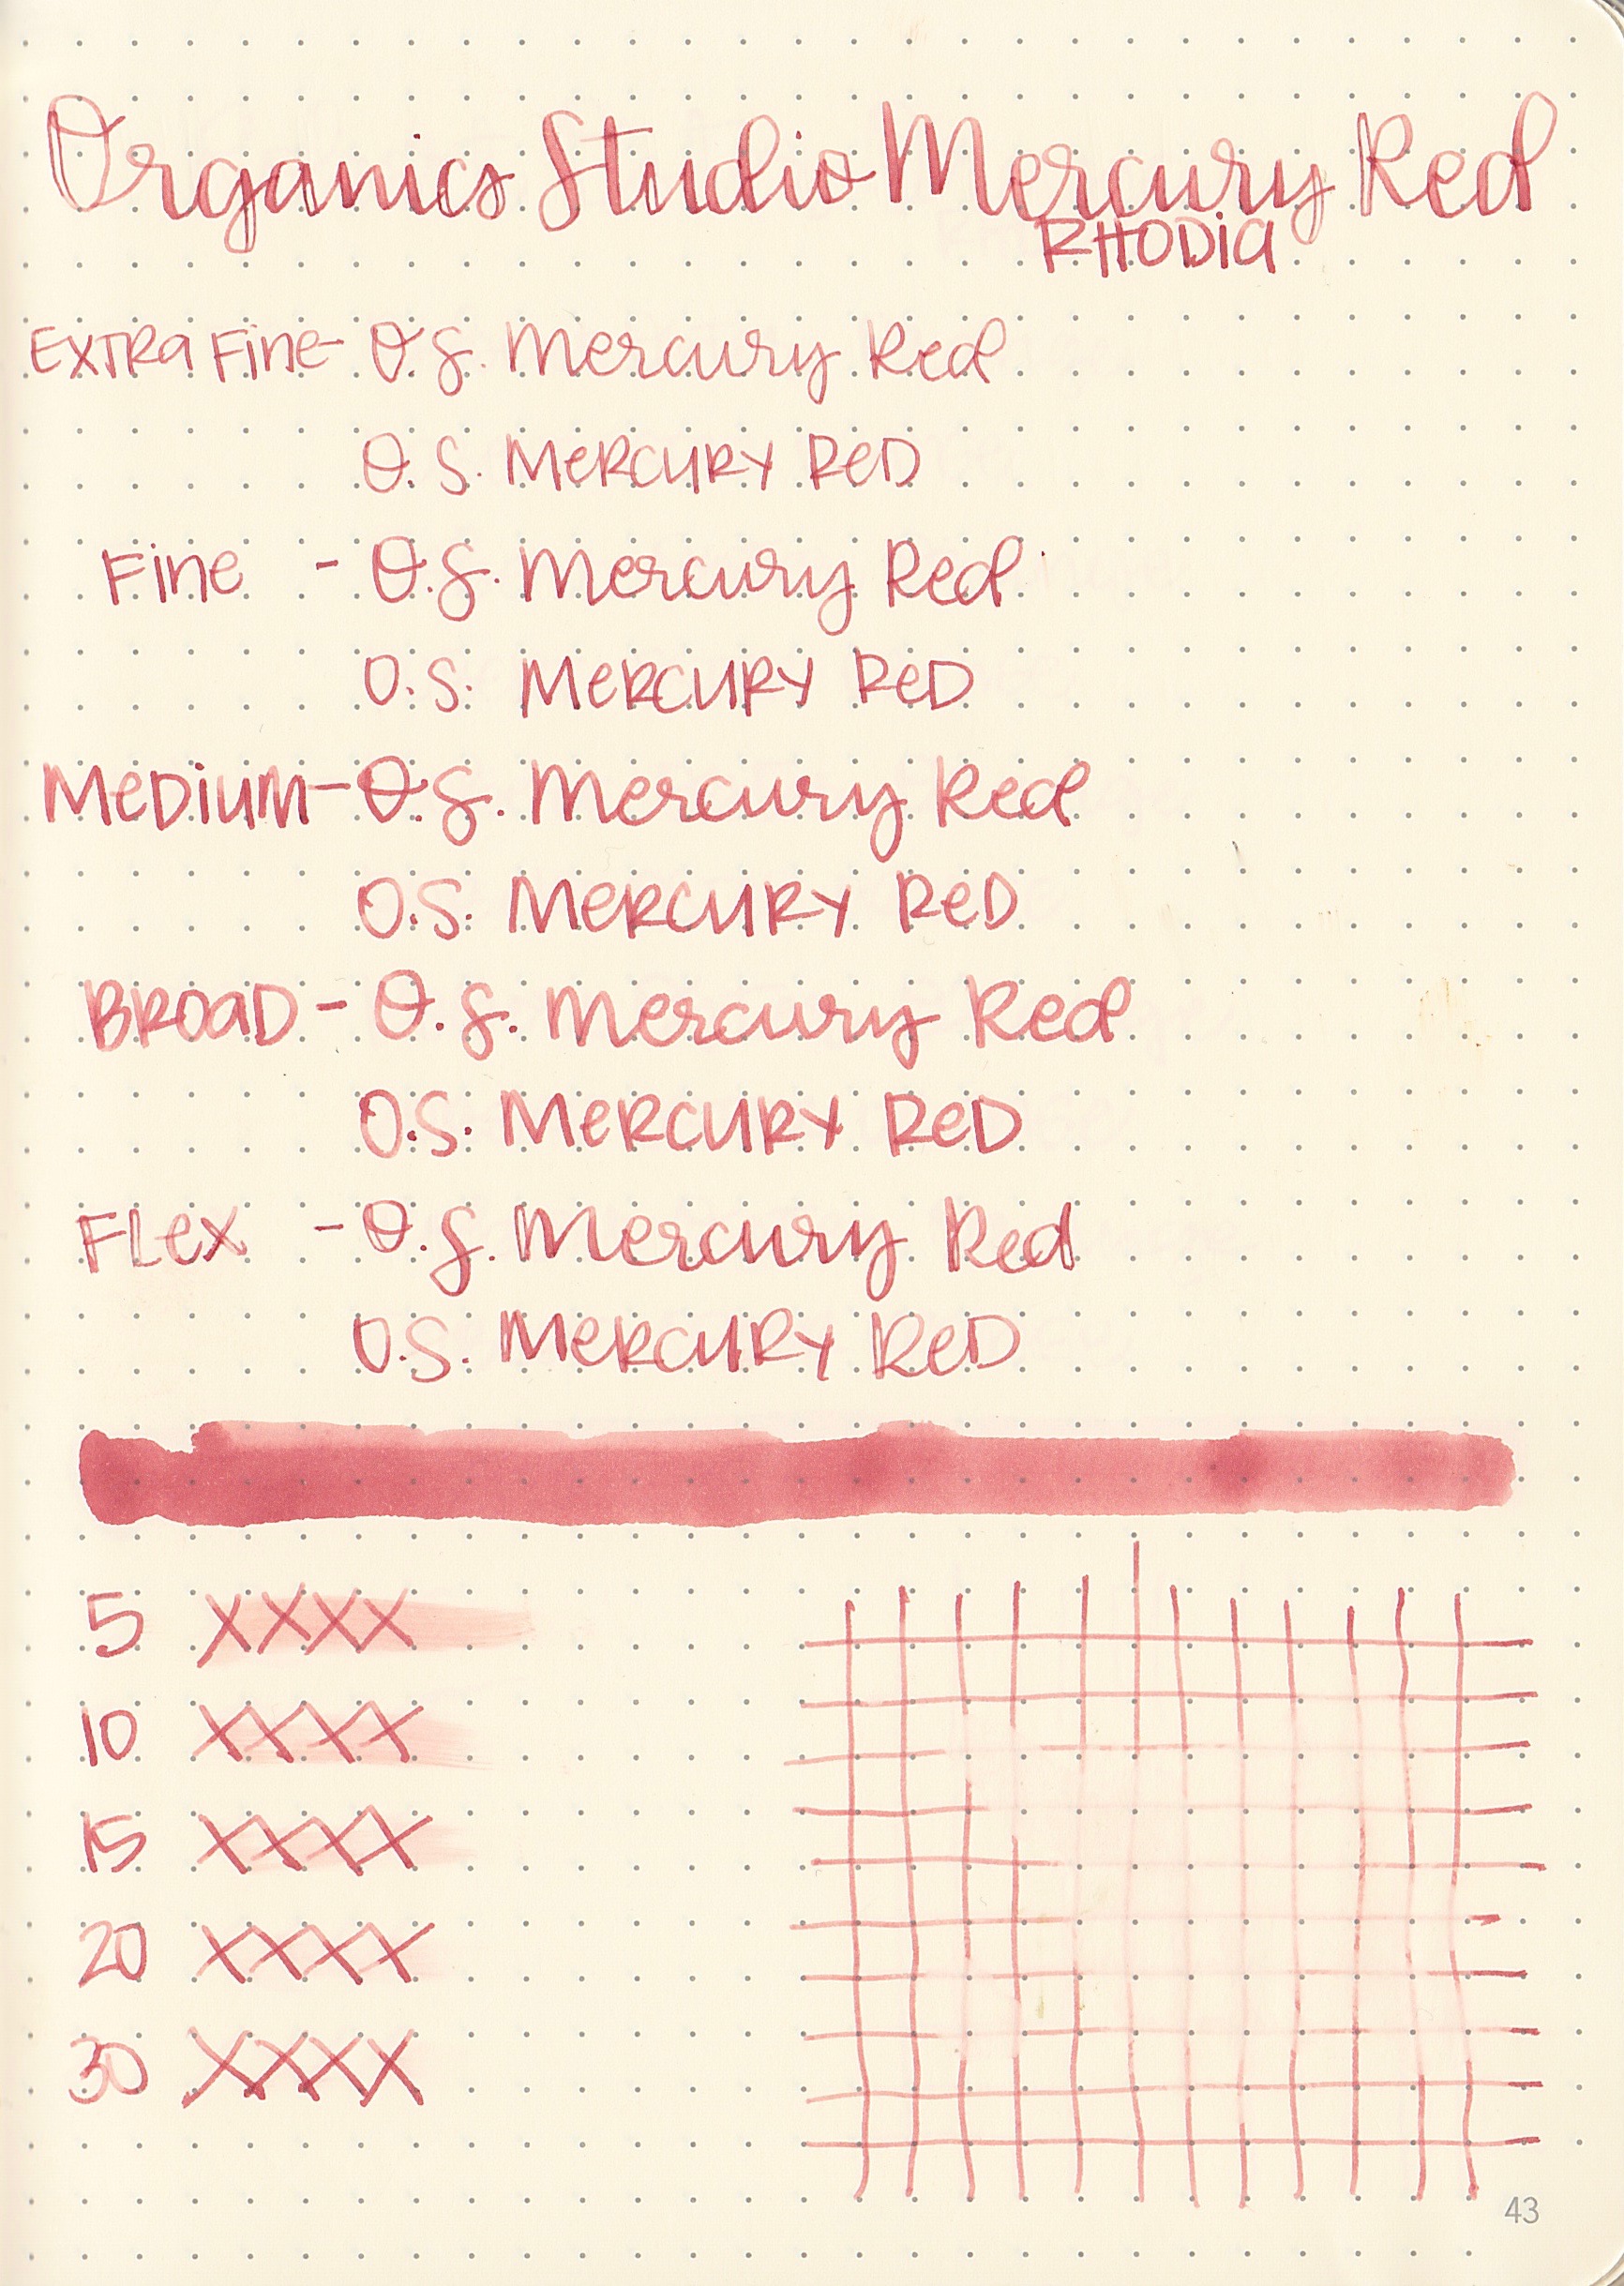 Organics Studio Mercury Red
RHODiA
EXTRA Fine - O.S. Mercury Red
O.S. MeRCURY ReD
Fine - O.S. Mercury Red
O.S. MeRCURY ReD
MeDiUM - O.S. Mercury Red
O.S. MeRCURY ReD
BROAD - O.S. Mercury Red
O.S. MeRCURY ReD
FLex - O.S. Mercury Red
O.S. MeRCURY ReD
5 XXXX
10 XXXX
15 XXXX
20 XXXX
30 XXXX
43